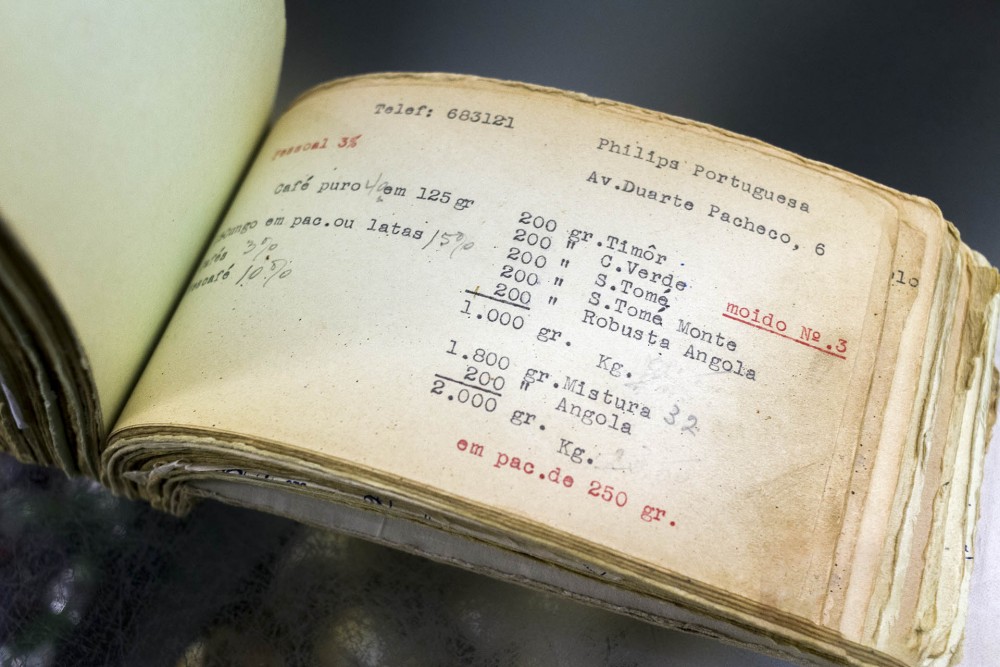 Telef: 683121
Philips Portuguesa
Av.Duarte Pacheco, 6
Pessoal 3%
Café puro 4% em 125 gr
em pac.ou latas 15%
3%
10%
200 gr.Timôr
200 " C.Verde
200 " S.Tomé
200 " S.Tomé Monte
200 " Robusta Angola
1.000 gr. Kg.
moido Nº.3
1.800 gr.Mistura 32
200 " Angola
2.000 gr. Kg.
em pac.de 250 gr.